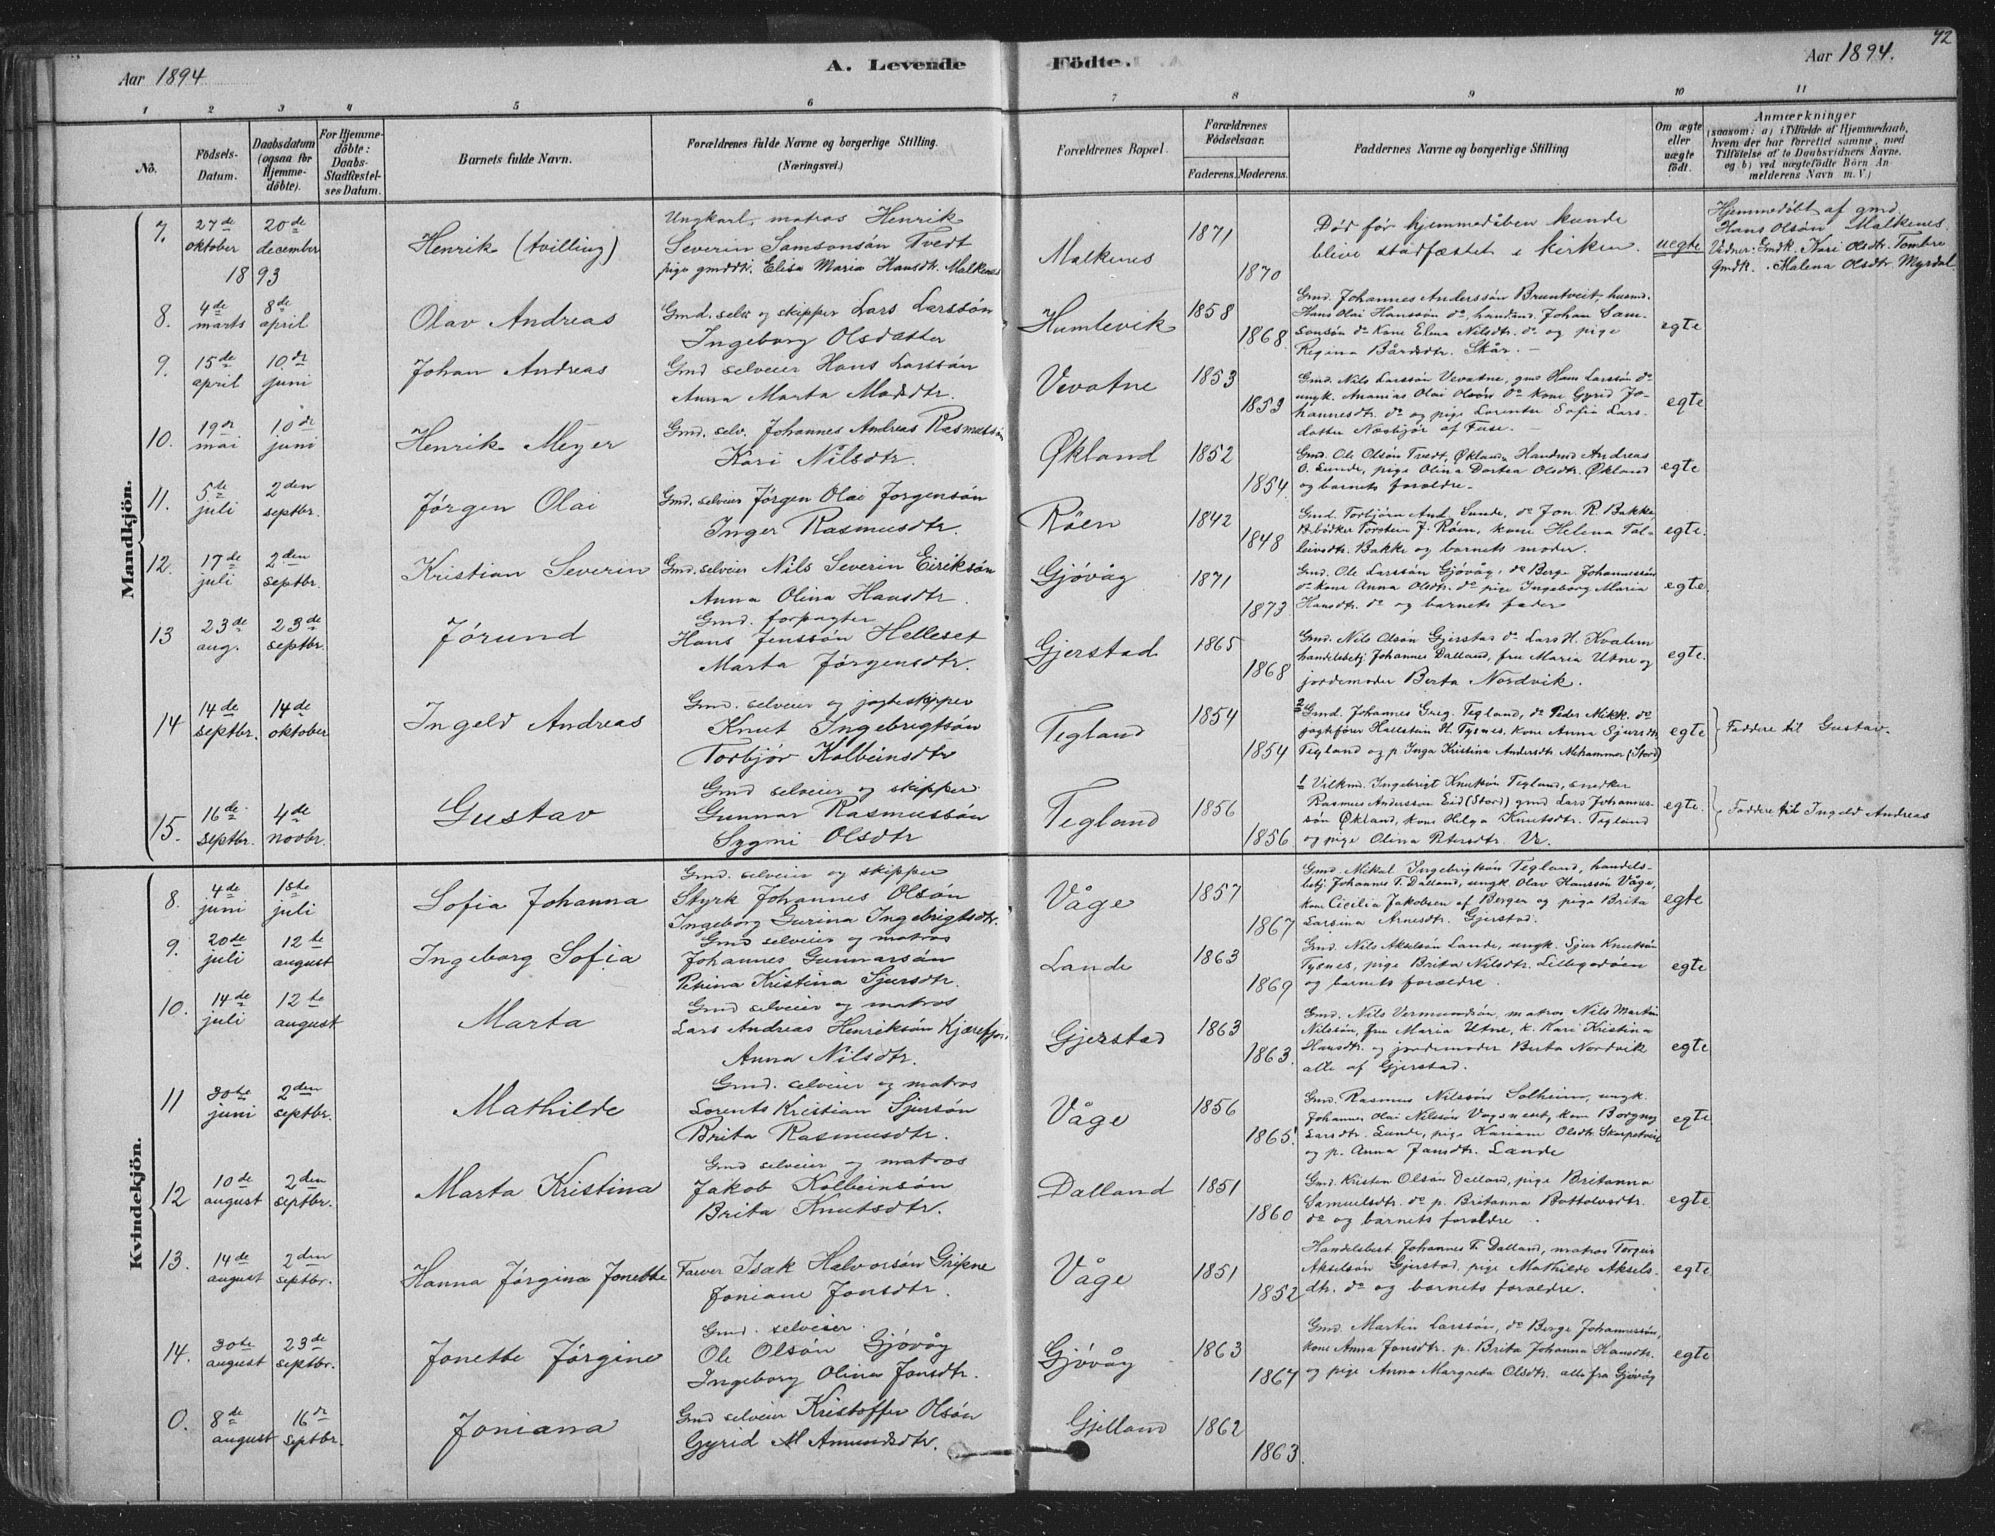 Aar 1894.
A. Levende Fødte.
Aar 1894.
72
1 2 3 4 5 6 7 8 9 10 11
No.
Fødsels-Datum.
Daabsdatum (ogsaa før Hjemmedöbte).
For Hjemmedöbte: Daabs-Stadfæstelses Datum.
Barnets fulde Navn.
Forældrenes fulde Navne og borgerlige Stilling. (Næringsvei.)
Forældrenes Bopæl.
Forældrenes Födselsaar.
Faderens. Moderens.
Faddernes Navne og borgerlige Stilling
Om ægte eller uægte födt.
Anmærkninger
(saasom: a) i Tilfælde af Hjemmedaab, hvem der har forrettet samme, med Tilföielse af to Daabsvidners Navne, og b) ved uægtefödte Börn Anmelderens Navn m. V.)
Mandkjön.
7. 27de oktober 1893 20de december Henrik (tvilling)
Ungkarl, matros Henrik
Severin Samsonsön Tvedt
pige gmddtr. Elisa Maria Hansdtr. Malkenes
Malkenes 1871 1870
Död før hjemmedåben kunde
blive stadfæstet i kirken.
uegte
Hjemmedöbt af gmd.
Hans Olsön Malkenes.
Vidner: Gmdk. Kari Olsdtr. Tombre
Gmdk. Malena Olsdtr. Myrdal
8. 4de marts 8de april Olav Andreas
Gmd. selv. og skipper Lars Larssön
Ingeborg Olsdatter
Humlevik 1858 1868
Gmd. Johannes Anderssön Bruntveit, husmd.
Hans Olai Hanssön do, handsmd. Johan Sam-
sonsön do kone Elna Nilsdtr. do og pige
Regina Bårdsdtr. Skår.
egte
9. 15de april 10de juni Johan Andreas
Gmd selveier Hans Larssön
Anna Marta Madsdtr.
Vevatne 1853 1853
Gmd. Nils Larssön Vevatne, gmd Hans Larssön do
ungk. Ananias Olai Olsön do kone Gyrid Jo-
hannesdtr. do og pige Lorentse Sofia Lars-
datter Næsbjør af Fuse.
egte
10. 19de mai 10de juni Henrik Meyer
Gmd. selv. Johannes Andreas Rasmussön
Kari Nilsdtr.
Økland 1852 1854
Gmd. Ole Olsön Tvedt, Økland Handsmd Andreas
O. Lunde, pige Olina Dortea Olsdtr. Økland
og barnets forældre.
egte
11. 5te juli 2den septbr. Jørgen Olai
Gmd. selveier Jørgen Olai Jørgensön
Inger Rasmusdtr.
Röen 1842 1848
Gmd. Torbjörn And. Lunde, do Jon R. Bakke
bödker Torstein J. Röen, kone Helena Tol-
leivsdtr. Bakke og barnets moder.
egte
12. 17de juli 2den septbr. Kristian Severin
Gmd. selveier Nils Severin Eiriksön
Anna Olina Hansdtr.
Gjövåg 1871 1873
Gmd. Ole Larssön Gjövåg, do Berge Johannessön
do kone Anna Olsdtr. do pige Ingeborg Maria
Hansdtr. do og barnets fader
egte
13 23de aug. 23de septbr. Jørund
Gmd. forpagter
Hans Jenssön Helleset
Marta Jørgensdtr.
Gjerstad 1865 1868
Gmd. Nils Olsön Gjerstad do Lars H. Kvalem
handelsbetj Johannes Dalland, fru Maria Utne og
jordemoder Berta Nordvik.
egte.
14 14de septbr. 14de oktober Ingeld Andreas
Gmd. selveier og jagteskipper
Knut Ingebrigtsön
Torbjør Kolbeinsdtr
Tegland 1854 1854
2 Gmd. Johannes Greg. Tegland, do Peder Mikk. do
jagtfører Hallstein H. Tysnes, kone Anna Sjursdtr
Tegland og p. Inga Kristina Andersdtr Mehammer (Stord)
egte
Faddere til Gustav.
15. 16de septbr. 4de novbr. Gustav
Gmd selveier og skipper
Gunnar Rasmussön
Sygni Olsdtr
Tegland 1856 1856
1 Vilkmd. Ingebrigt Knutsön Tegland, snedker
Rasmus Anderssön Eid (Stord) gmd Lars Johannes-
sön Økland, kone Helga Knutsdtr. Tegland
og pige Olina Petersdtr. Ve.
egte.
Faddere til Ingeld Andreas
Kvindekjön.
8. 4de juni 1ste juli Sofia Johanna
Gmd. selveier og skipper
Styrk Johannes Olsön
Ingeborg Gurina Ingebrigtsdtr.
Våge 1857 1867
Gmd. Mikal Ingebrigtsön Tegland, handels-
betj Johannes T. Dalland, ungk. Olav Hanssön Våge,
kone Cicilia Jakobsen af Bergen og pige Brita
Larsina Arnesdtr. Gjerstad.
egte
9. 20de juli 12te august Ingeborg Sofia
Gmd selveier og matros
Johannes Gunnarsön
Petrina Kristina Sjursdtr.
Lande 1863 1869
Gmd. Nils Akselsön Lande, ungk. Sjur Knutsön
Tysnes, pige Brita Nilsdtr. Lillegodöen
og barnets forældre.
egte
10. 14de juli 12te august Marta
Gmd selveier og matros
Lars Andreas Henriksön Kjærefjor
Anna Nilsdtr.
Gjerstad 1863 1863.
Gmd. Nils Vermundsön, matros Nils Martin
Nilssön, fru Maria Utne, k. Kari Kristina
Hansdtr. og jordemoder Berta Nordvik
alle af Gjerstad.
egte
11 30te juni 2den septbr. Mathilde
Gmd. selveier og matros
Lorents Kristian Sjursön
Brita Rasmusdtr.
Våge 1856 1865.
Gmd. Rasmus Nilssön Solheim, ungk.
Johannes Olai Nilssön Vagsneset, kone Borgny
Larsdtr. Lunde, pige Kariane Olsdtr Skarpetveit
og p. Anna Jansdtr. Lande
egte
12 10de august 2den septbr. Marta Kristina
Gmd selveier og matros
Jakob Kolbeinsön
Brita Knutsdtr.
Dalland 1851 1860
Gmd. Kristen Olsön Dalland, pige Britanna
Samuelsdtr. do p. Britanna Bottolvsdtr.
do og barnets forældre
egte
13. 14de august 2den septbr. Hanna Jørgina Jonette
Farver Isak Halvorsön Gripne
Joniane Jonsdtr.
Våge 1851 1852
Handelsbest Johannes T. Dalland, matros Torgeir
Akselsön Gjerstad, pige Mathilde Aksels-
dtr. do og barnets forældre.
egte
14. 30te august 23de septbr. Jonette Jørgine
Gmd. selveier.
Ole Olsön Gjövåg
Ingeborg Olina Jonsdtr.
Gjövåg 1863 1867
Gmd. Martin Larssön, do Berge Johannessön,
kone Anna Jonsdtr. p. Brita Johanna Hansdtr.
og pige Anna Margreta Olsdtr. alle fra Gjövåg
egte
0. 8de august 16de septbr. Joniana
Gmd selveier Kristoffer Olsön
Gyrid M Amundsdtr.
Gjelland 1862 1863.